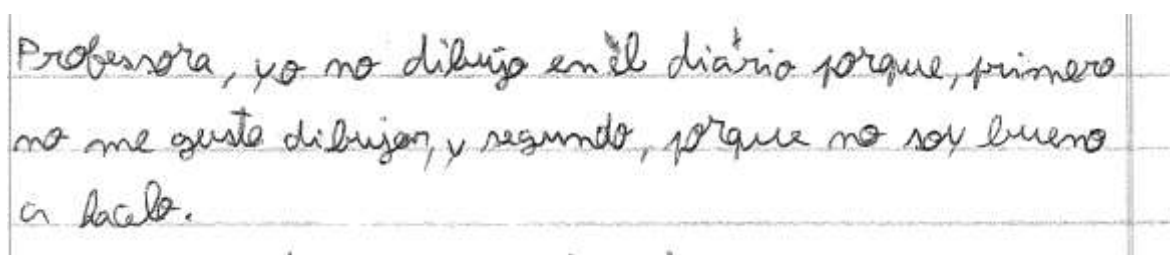 Professora, yo no dibujo en el diário porque, primero
no me gusta dibujar, y segundo, porque no soy bueno
a hacelo.